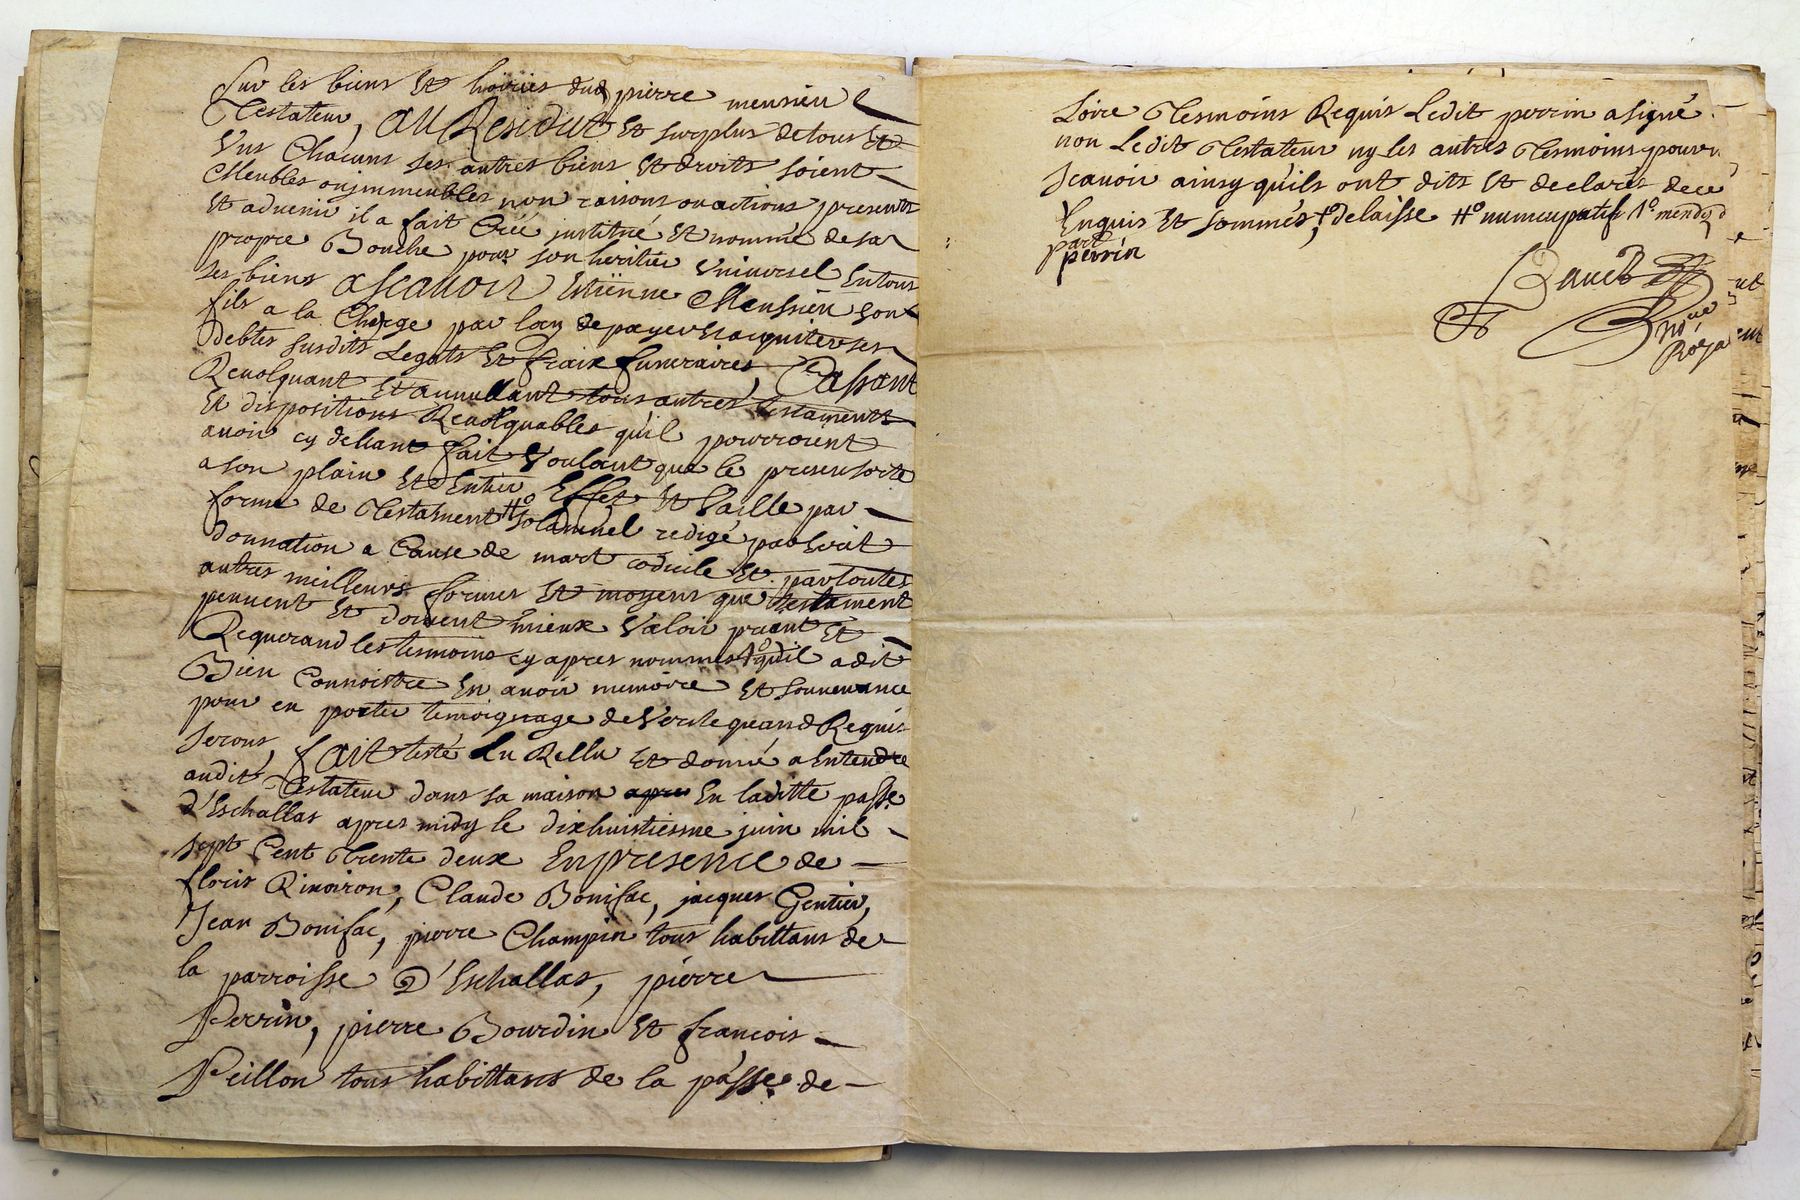 Sur les biens Et hoiries dud pierre mensieu
Testateur, AU Residut Et surplus de tous Et
Uns Chacuns ses autres biens Et droits soient
Meubles ou jmmeubles non raisons ou actions presents
Et advenir il a fait Créé jnstitué Et nommé de sa
propre Bouche pour son heritier Vniversel En tous
ses biens ascavoir Estiënne Mensieu son
fils a la Cherge par loy de payer Et acquiter ses
debtes susdits Legats Et fraix funeraires, Cassant
Revolquant Et annullant tous autres testaments
Et dispositions Revolquables qu'il pourroient
avoir cy devant fait Voulant que le presen sorte
a son plain Et Entier Effet Et Vaille par
forme de Testament # solamnel redigé par Escrit
donnation a Cause de mort codicile Et par toutes
autres meilleurs formes Et moyens que testament
peuvent Et doivent mieux Valoir priant Et
Requerand les tesmoins cy apres nommes qu'il a dit
Bien Connoistre En avoir memoire Et souvenance
pour en porter temoignage de Verité quand Requis
serons, fait testé Lu Rellu Et donné a Entendre
audit Testateur dans sa maison apres En laditte passe
d'Eschallas apres midy le dixhuistiesme juin mil
sept Cent Trente deux En presence de
floris Rivoiron, Claude Bonifac, jacques Gentier,
Jean Bonifac, pierre Champin tous habittans de
la parroisse D'Eschallas, pierre
Perrin, pierre Bourdin Et francois
Peillon tous habittans de la passe de
Loire Tesmoins Requis Ledit perrin a signé
non Ledit Testateur ny les autres Tesmoins pour
scavoir ainsy qu'ils ont dits Et declarés de ce
Enquis Et sommés, delaisse # nuncupatif 1°
part
perrin
No.re
Roya